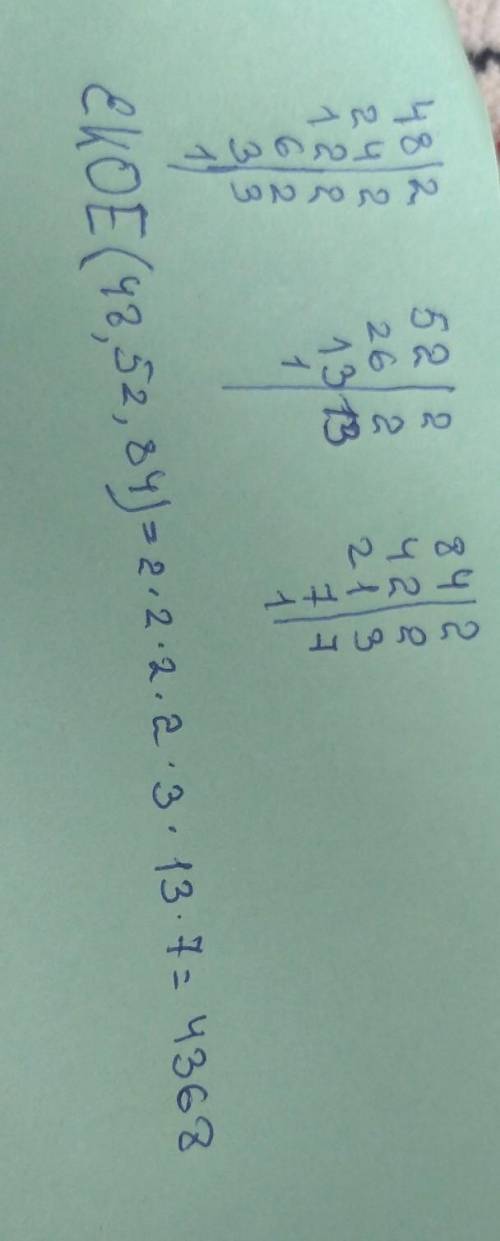 48 | 2
24 | 2
12 | 2
6 | 2
3 | 3
1 |
52 | 2
26 | 2
13 | 13
1 |
84 | 2
42 | 2
21 | 3
7 | 7
1 |
ЕКОЕ (48, 52, 84) = 2 · 2 · 2 · 2 · 3 · 13 · 7 = 4368